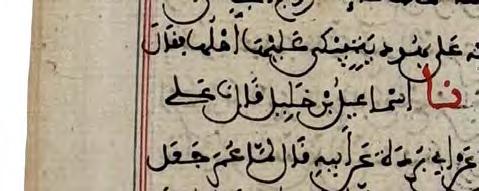 على يهودية يبكي عليها أهلها فقال
نا اسماعيل بن خليل قال نا علي
عن ابي بردة عن أبيه قال لما عمر جعل